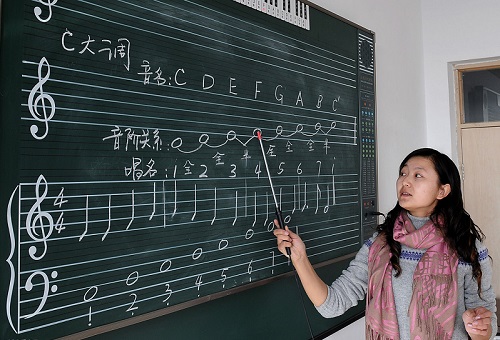 C大调
音名: C D E F G A B C¹
音阶关系:
全 半 全 全 全 半
唱名: 1 全 2 3 4 5 6 7 i
4 4
4 4
1 2 3 4 5 6 7